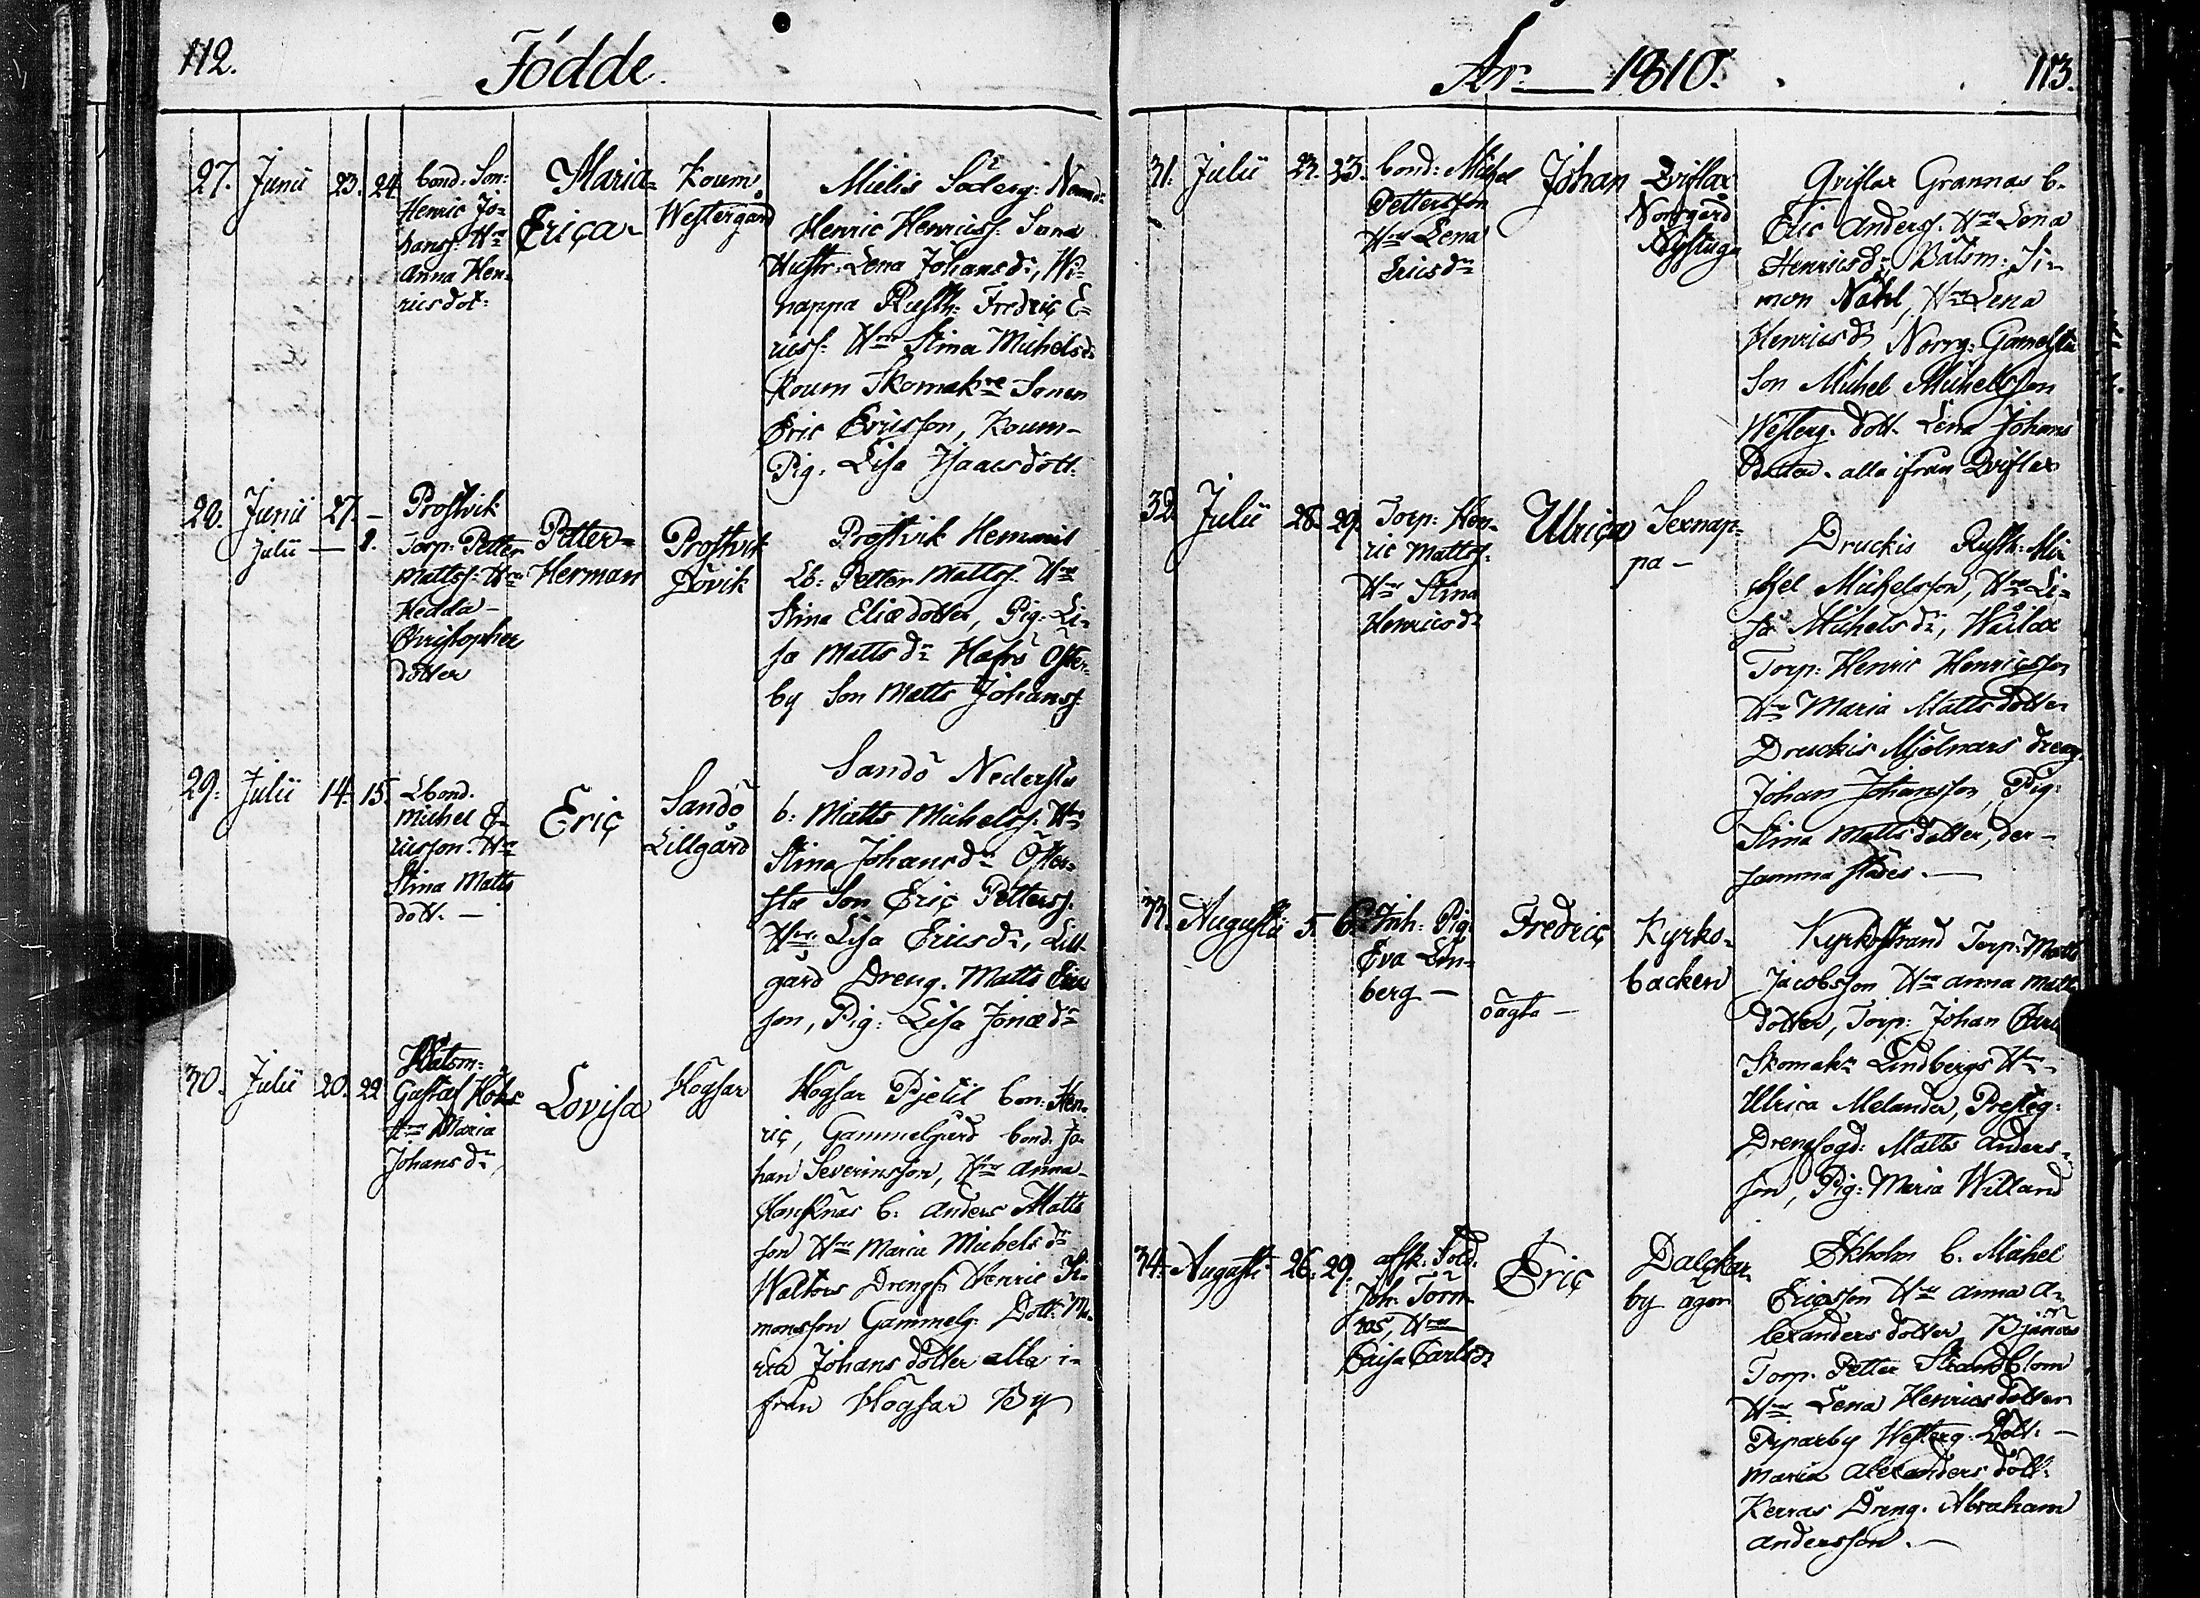 112.
Födde.
27. Junii 23. 24.
bond. Son:
Henric Jo-
hanss. Hru
Anna Hen-
ricsdot:
Maria
Erica
Koum
Westergård
Mielis Söderg: Nämnd:
Henric Henricss: Sune
Hustr: Lena Johansdr, Wi-
nappa Rusth: Fredric E-
ricss: Hru Stina Michelsdr
Koum Skomakre Sonen
Eric Ericsson, Koum
Pig. Lisa Isaacsdott.
28. Junii 27. -
Julii - 1.
Prostvik
Torp: Petter
Mattss: Hru
Hedda
Christopher
dotter
Petter
Herman
Prostvik
Lövik
Prostvik Hemmis
Lb: Petter Mattss. Hru
Stina Eliædotter, Pig: Li-
sa Mattsdr Hafrö Öster-
by Son Matts Johanss.
29. Julii 14. 15.
Lbond.
Michel E-
ricsson. Hru
Stina Matts
dott. -
Eric
Sandö
Lillgård
Sandö Nedersta
b: Matts Michelss. Hru
Stina Johansdr Öfver-
sta Son Eric Petterss.
Hru Lisa Ericsdr, Lill-
gård Dreng. Matts Eric
son, Pig: Lisa Jonædr
30. Julii 20. 22
Båtsm:
Gustaf Hoks
Hru Maria
Johansdr
Lovisa
Högsar
Högsar Pjetil bon: Hen-
ric, Gammelgård bond. Jo-
han Severinsson, Hru Anna
Hansknas b. Anders Matts
son Hru Maria Michelsdr
Walters Drengs: Henric Si-
monsson Gammelg: Dott: Ma-
ria Johansdotter alla i-
från Högsar By
År 1810.
113.
31. Julii 22. 23.
bond: Michel
Pettersson
Hru Lena
Ericsdr
Johan
Qviflax
Norrgård
Nystuga
Qviflax Grannas b.
Eric Anderss. Hru Lena
Henricsdr, Båtsm: Si-
mon Nähl, Hru Lena
Henricsdr Norrg: Gamelstu
Son Michel Michelsson
Westerg. dott. Lena Johans
Dotter. alla ifrån Qviflax
32. Julii 28. 29.
Torp: Hen-
ric Mattss.
Hru Stina
Henricsdr
Ulrica
Sexnap-
pa -
Druckis Rusth: Mi-
chel Michelsson, Hru Li-
sa Michelsdr, Wällax
Torp: Henric Henricsson
Hru Maria Mattsdotter
Druckis Mjölnars dreng
Johan Johansson, Pig:
Stina Mattsdotter, der-
samma städes. -
33. Augusti 5. 6.
Inh: Pig:
Eva Lin-
berg -
Fredric
oägta -
Kyrko-
backen
Kyrkostrand Torp: Matts
Jacobsson Hru Anna Matts
dotter, Torp: Johan Carls
Skomakr Lindbergs Hru
Ulrica Melander, Presteg:
Drengfogd: Matts Anders-
son, Pig: Maria Willand
34. Augusti 26. 29.
afsk: Sold.
Joh: Törn
ros, Hru
Caisa Carlsdr
Eric
Dalckar
by ägor
Ekholm b. Michel
Ericsson Hru Anna A-
lexandersdotter Bjänäs
Torp. Petter Strandblom
Hru Lena Henricsdotter
Piparby Westerg: Dott: -
Maria Alexandersdott:
Kerras Dreng. Abraham
Andersson. -